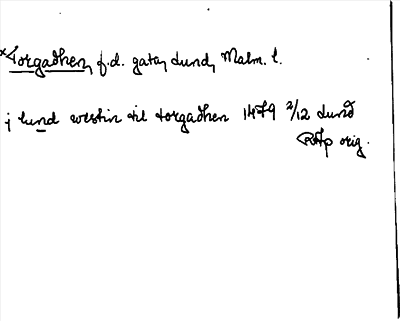 *Torgadhen, f.d. gata, Lund, Malm. l.
j lund westin til torgadhen 1479 2/12 Lund
RAp orig.